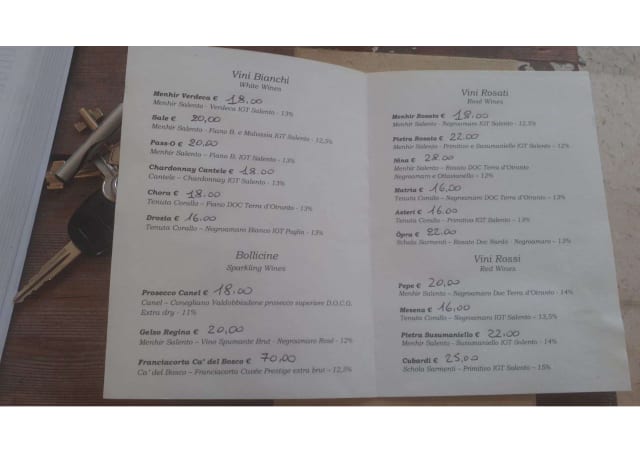 Vini Bianchi
White Wines
Menhir Verdeca € 18,00
Menhir Salento - Verdeca IGT Salento - 13%
Sale € 20,00
Menhir Salento - Fiano B. e Malvasia IGT Salento - 12,5%
Pass-O € 20,00
Menhir Salento - Fiano B. IGT Salento - 13%
Chardonnay Cantele € 18,00
Cantele - Chardonnay IGT Salento - 13%
Chora € 18,00
Tenuta Corallo - Fiano DOC Terra d'Otranto - 13%
Drozia € 16,00
Tenuta Corallo - Negroamaro Bianco IGT Puglia - 13%
Bollicine
Sparkling Wines
Prosecco Canel € 18,00
Canel - Conegliano Valdobbiadene prosecco superiore D.O.C.G.
Extra dry - 11%
Gelso Regina € 20,00
Menhir Salento - Vino Spumante Brut - Negroamaro Rosé - 12%
Franciacorta Ca' del Bosco € 70,00
Ca' del Bosco - Franciacorta Cuvée Prestige extra brut - 12,5%
Vini Rosati
Rosé Wines
Menhir Rosato € 18,00
Menhir Salento - Negroamaro IGT Salento - 12,5%
Pietra Rosato € 22,00
Menhir Salento - Primitivo e Susumaniello IGT Salento - 12%
Nina € 28,00
Menhir Salento - Rosato DOC Terra d'Otranto
Negroamaro e Ottavianello - 12%
Matria € 16,00
Tenuta Corallo - Negroamaro DOC Terra d'Otranto - 13%
Asteri € 16,00
Tenuta Corallo - Primitivo IGT Salento - 13%
Òpra € 22,00
Schola Sarmenti - Rosato Doc Nardò - Negroamaro - 13%
Vini Rossi
Red Wines
Pepe € 20,00
Menhir Salento - Negroamaro Doc Terra d'Otranto - 14%
Mesena € 16,00
Tenuta Corallo - Negroamaro IGT Salento - 13,5%
Pietra Susumaniello € 22,00
Menhir Salento - Susumaniello IGT Salento - 14%
Cubardi € 25,00
Schola Sarmenti - Primitivo IGT Salento - 15%